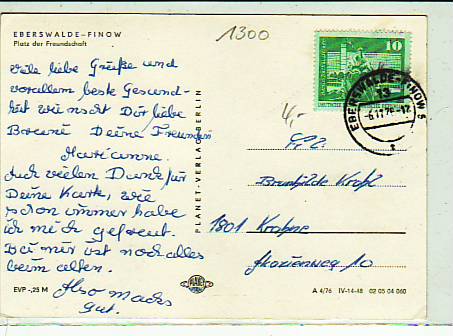 EBERSWALDE-FINOW
Platz der Freundschaft
1300
10
EBERSWALDE-FINOW 5
13
-6.11.76-12
f
viele liebe Grüße und
vorallem beste Gesund-
heit wünscht Dir liebe
Deine Freundin
Marianne.
Auch vielen Dank für
Deine Karte, wie
schon immer habe
ich mich gefreut.
Bei mir ist noch alles
beim alten.
Also machs
gut.
4,-
Brunhilde
1801
10
PLANET-VERLAG BERLIN
EVP -,25 M
PLANET
A 4/76 IV-14-48 02 05 04 060